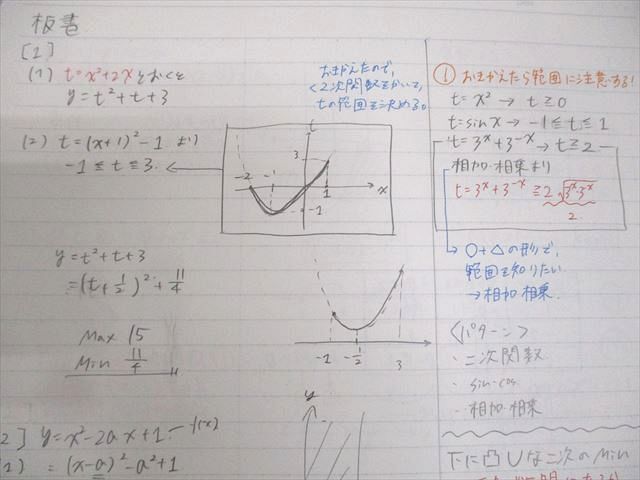 板書
[1]
(1) t=x²+2xとおくと
y=t²+t+3
おきかえたので、
2次関数をかいて、
tの範囲を決める。
(2) t=(x+1)²-1 より
-1≦t≦3.
t
3
-2
-1
1
-1
x
y=t²+t+3
=(t+1/2)²+11/4
Max 15
Min 11/4
-1
-1/2
3
y
[2] y=x²-2ax+1 -f(x)
(1) =(x-a)²-a²+1
① おきかえたら範囲に注意する!
t=x² → t≧0
t=sinx → -1≦t≦1
t=3^x+3^-x → t≧2
相加・相乗より
t=3^x+3^-x≧2√3^x・3^-x
2
→ ○+△の形で、
範囲を知りたい
→相加相乗.
<パターン>
・二次関数
・sin・cos
・相加・相乗
下に凸∪な二次のMin